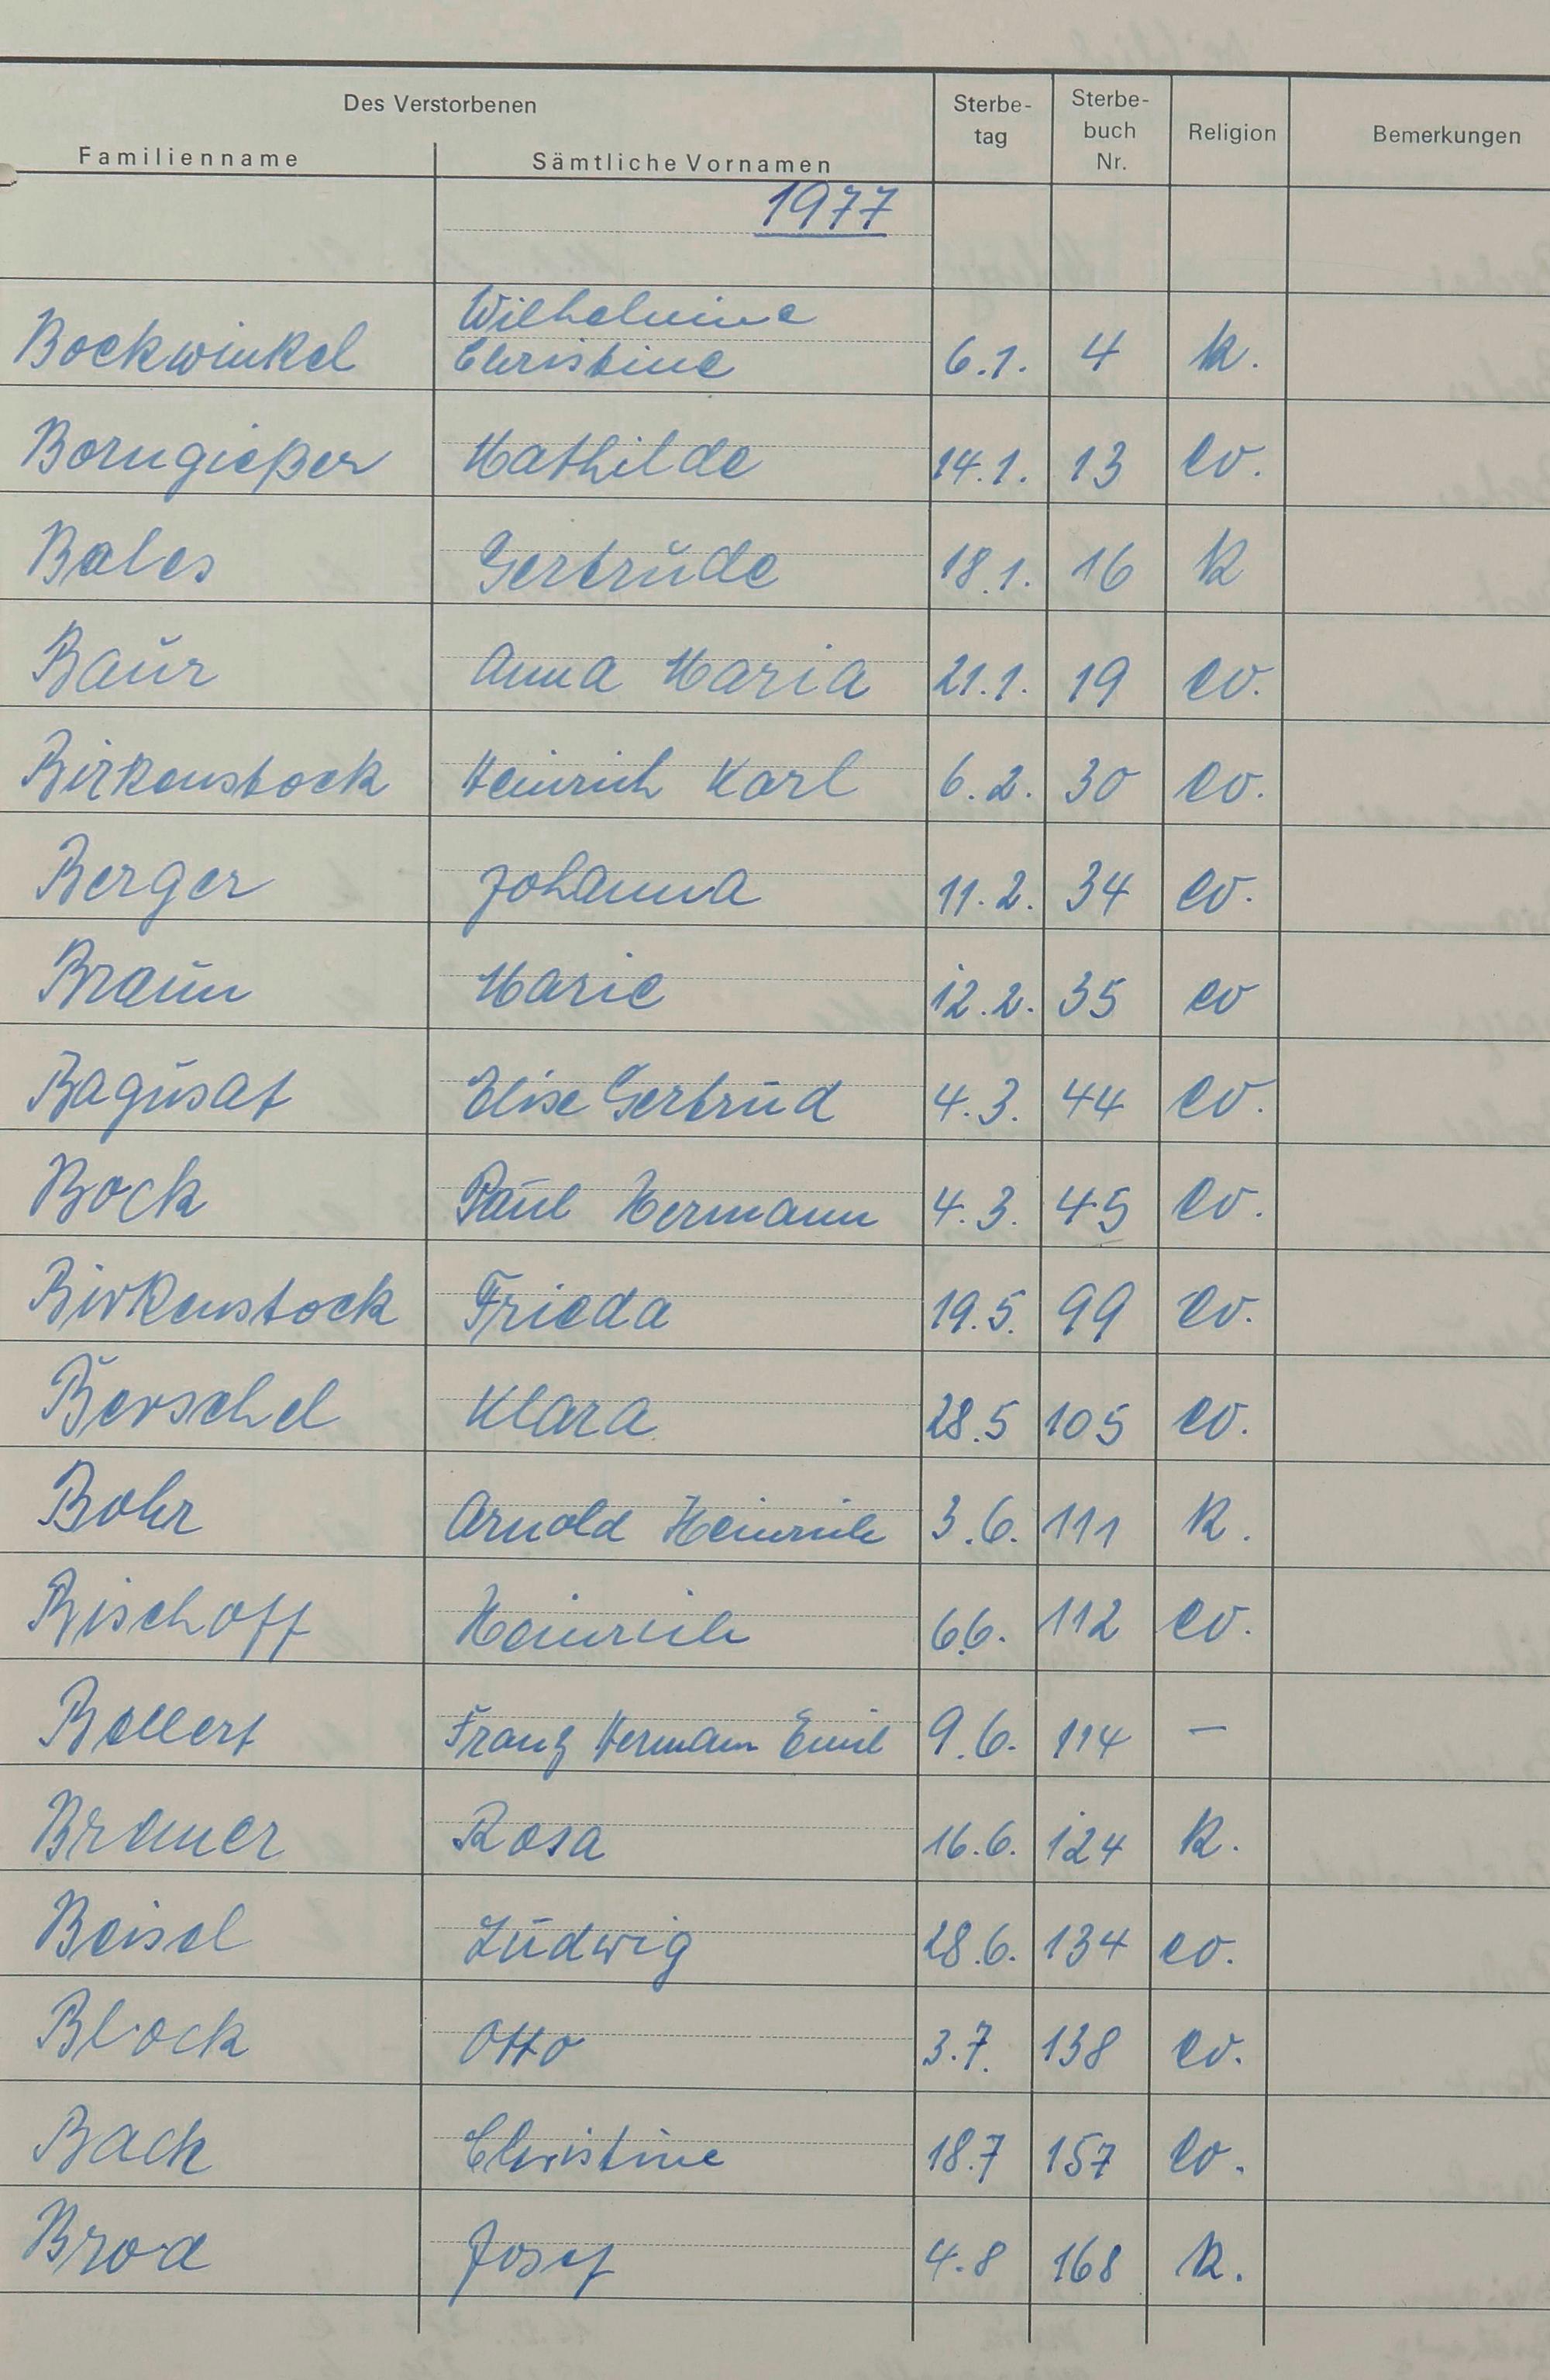 Des Verstorbenen
Familienname Sämtliche Vornamen Sterbe-tag Sterbe-buch Nr. Religion Bemerkungen
1977
Bockwinkel Wilhelmine Christine 6.1. 4 k.
Borngießer Mathilde 14.1. 13 ev.
Bales Gertrude 18.1. 16 k
Baur Anna Maria 21.1. 19 ev.
Birkenstock Heinrich Karl 6.2. 30 ev.
Berger Johanna 11.2. 34 ev.
Braun Marie 12.2. 35 ev
Bagusat Elise Gertrud 4.3. 44 ev.
Bock Paul Hermann 4.3. 45 ev.
Birkenstock Frieda 19.5. 99 ev.
Berschel Klara 28.5 105 ev.
Bohr Arnold Heinrich 3.6. 111 k.
Bischoff Heinrich 6.6. 112 ev.
Bollert Franz Hermann Emil 9.6. 114 –
Bramer Rosa 16.6. 124 k.
Beisel Ludwig 28.6. 134 ev.
Block Otto 3.7. 138 ev.
Back Christine 18.7 157 ev.
Brod Josef 4.8 168 k.